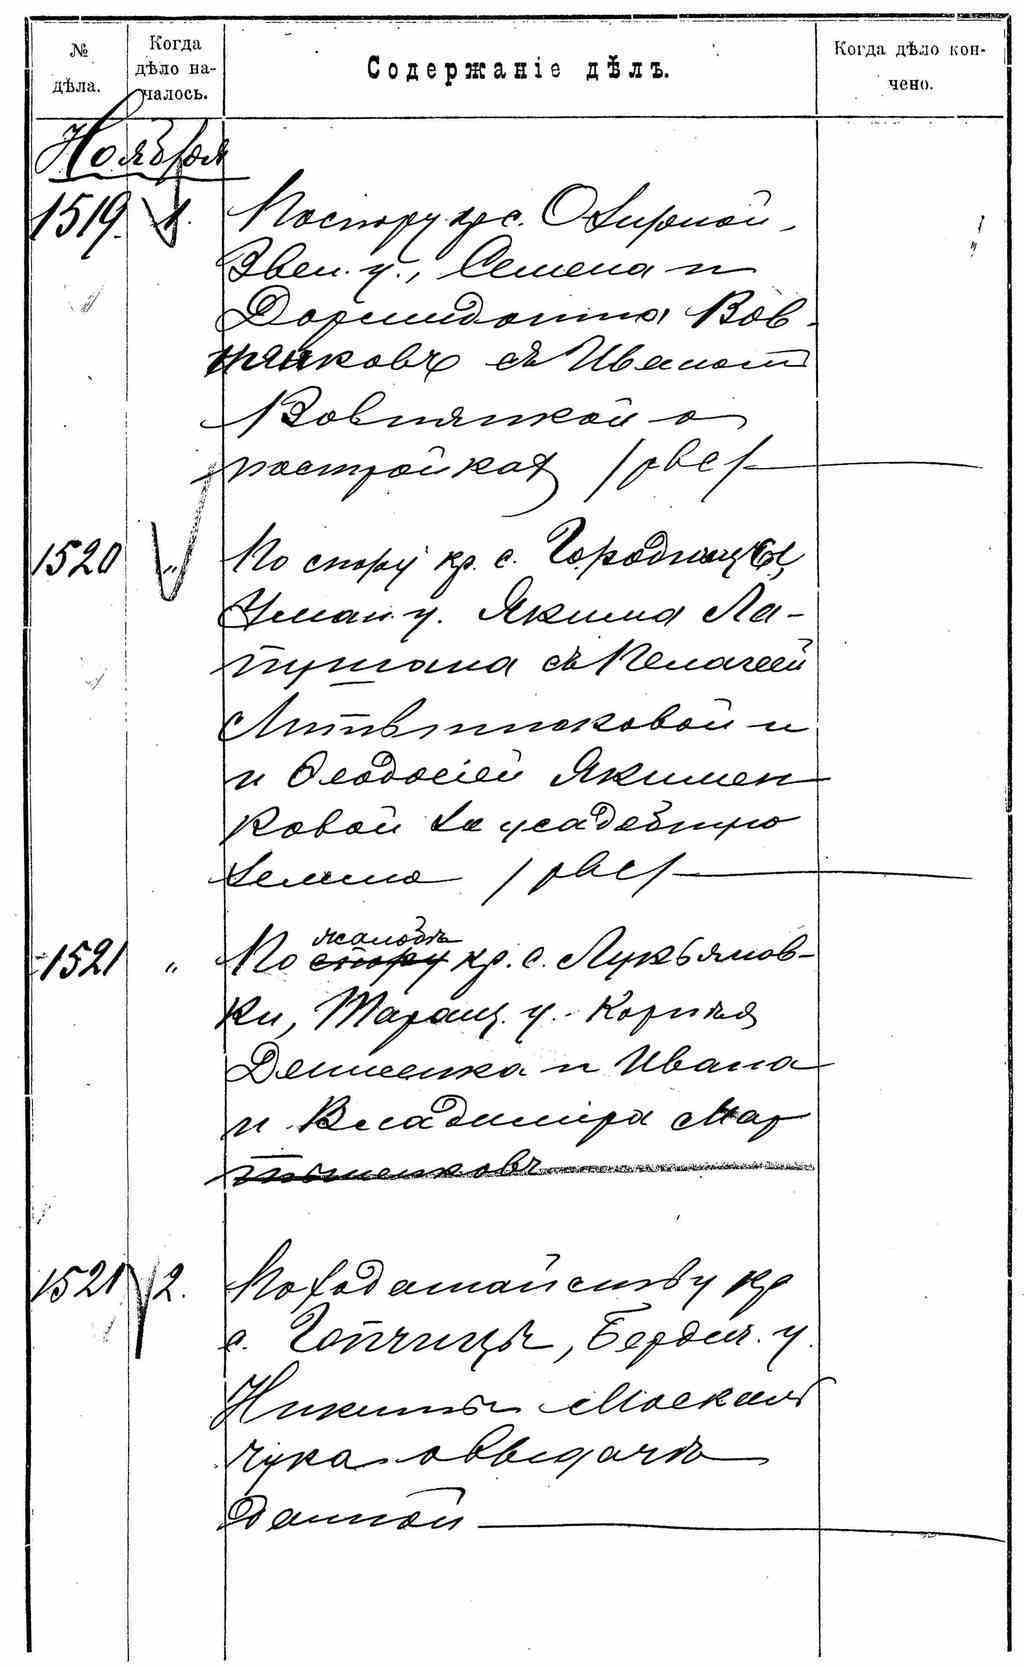 № дѣла.
Когда дѣло началось.
Содержаніе дѣлъ.
Когда дѣло кончено.
Ноября
1519. 1. По спору кр. с. Озирной,
Звен. у., Семена и
Дормидонта Вов-
нянковъ съ Иваномъ
Вовнянкой о
постройках /рвс/
1520 „ По спору кр. с. Городницы,
Уман. у. Якима Ла-
пушана съ Пелагеей
Литвинюковой и
и Ѳеодосіей Якимен
ковой за усадебную
землю /рвс/
1521 „ По жалобѣ
спору кр. с. Лукьянов-
ки, Таращ. у. Корнія
Денисенка и Ивана
и Владиміра Мар
тыненковъ
1521 2. По ходатайству кр
с. Топчицъ, Бердич. у.
Никиты Москаль
чука о выдачѣ
данной